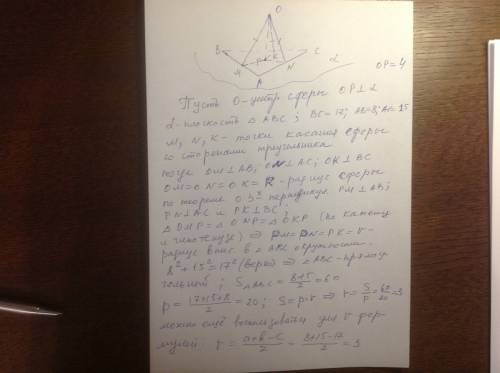 O
B
C
M
P
K
N
A
α
OP=4
Пусть O-центр сферы OP⊥α
α-плоскость △ABC; BC=17; AB=8; A=15
M, N, K- точки касания сферы
со сторонами треугольника
тогда OM⊥AB, ON⊥AC; OK⊥BC
OM=ON=OK=R-радиус сферы
по теореме о 3х перпендикул PM⊥AB;
PN⊥AC и PK⊥BC;
△OMP=△ONP=△OKP (по катету
и гипотенузе) ⇒ PM=PN=PK=r-
радиус впис. в △ABC окружности.
8²+15²=17² (верно) ⇒ △ABC-прямоу
гольный; S△ABC = 8·15/2 = 60
p = 17+15+8/2 = 20; S=p·r ⇒ r = S/p = 60/20 = 3
можно ещё воспользоваться для r фор-
мулой: r = a+b-c/2 = 8+15-17/2 = 3